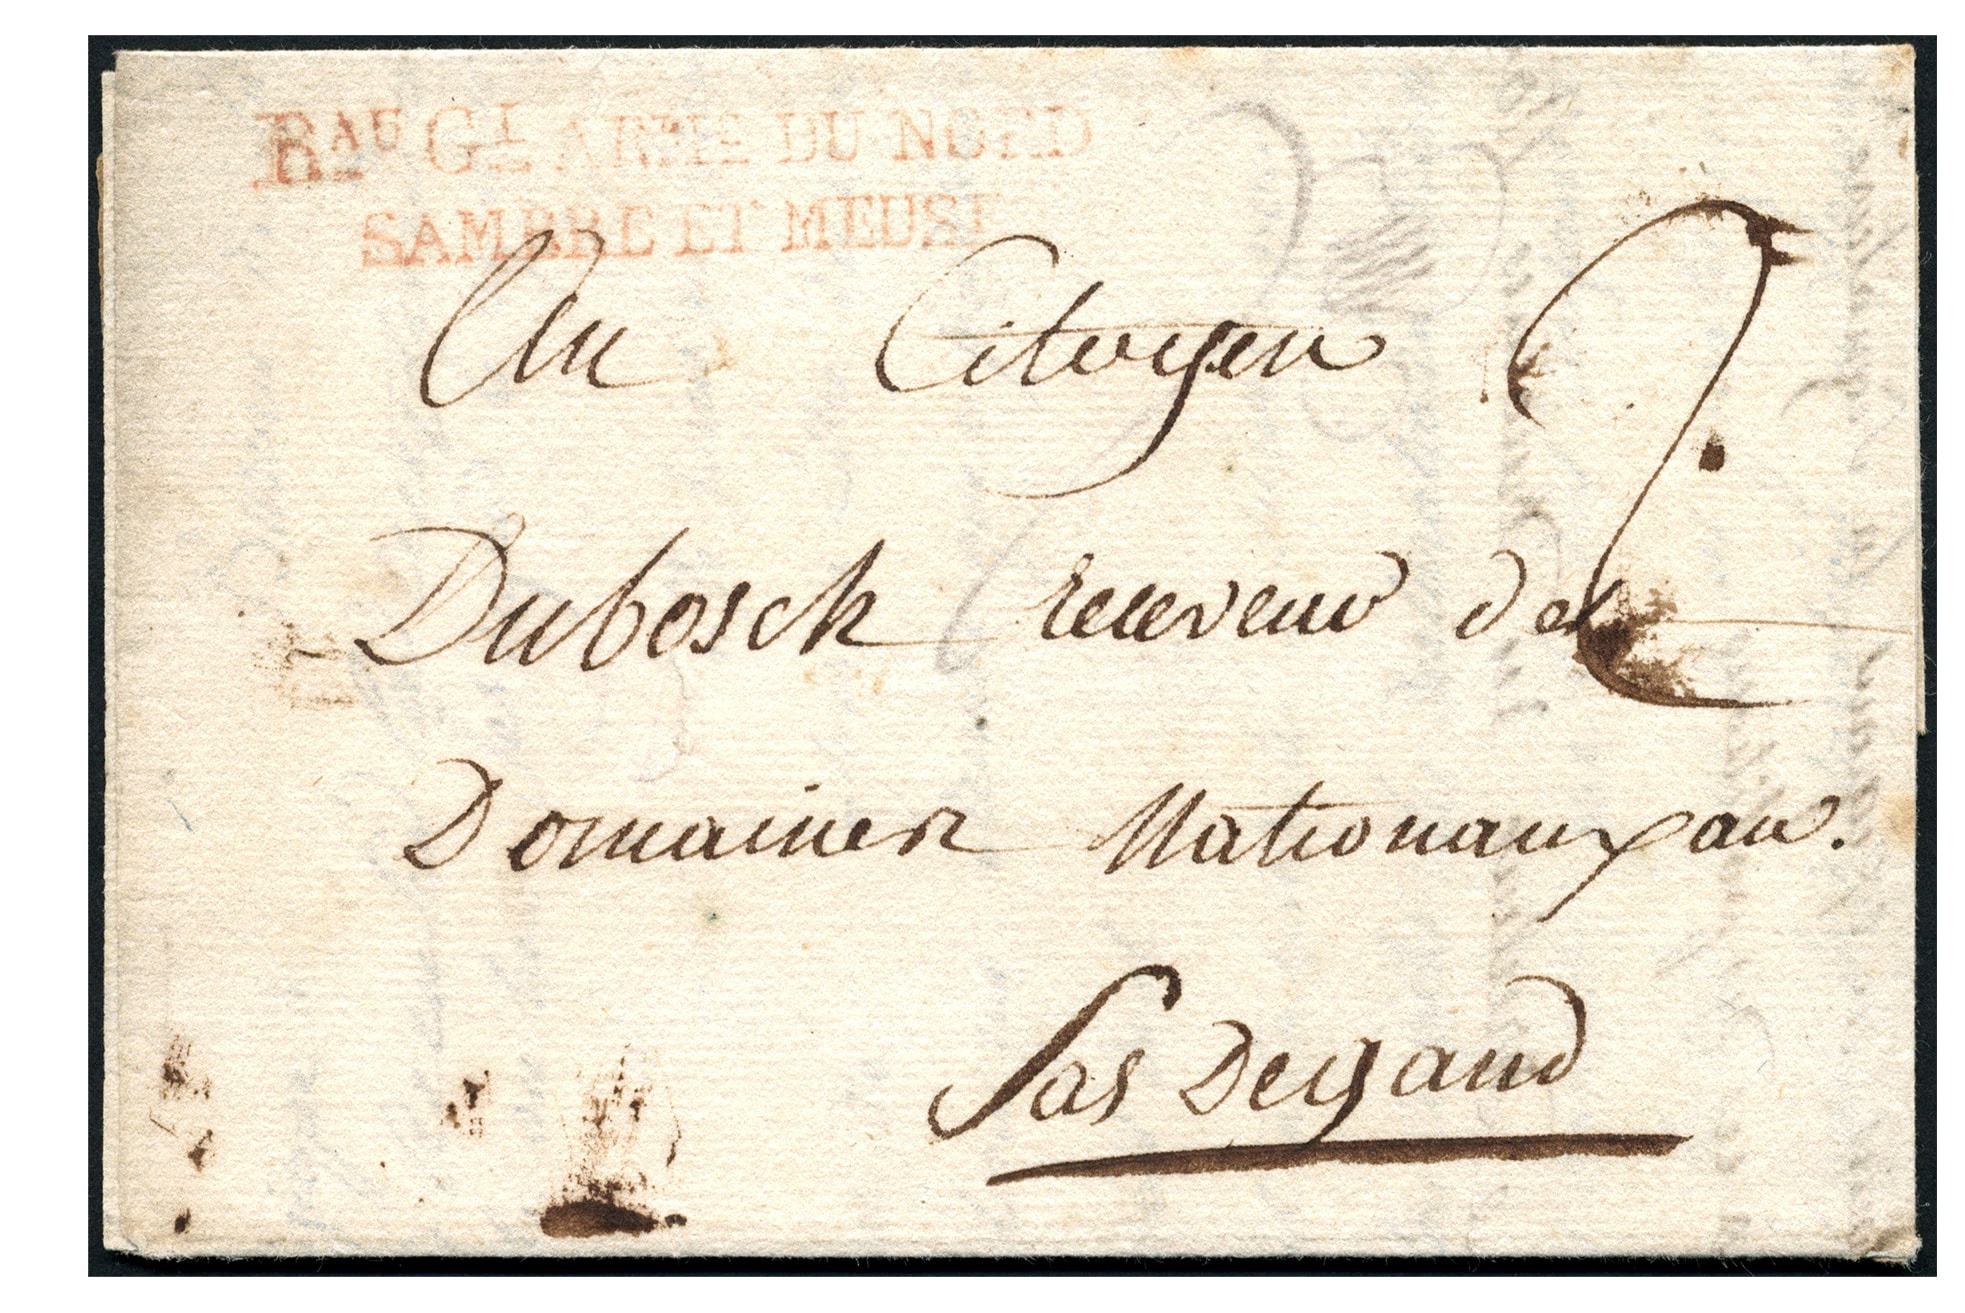 BAU GL ARMEE DU NORD
SAMBRE ET MEUSE
Au Citoyen
Dubosch receveur des
Domaines Nationaux au
Sas De gand